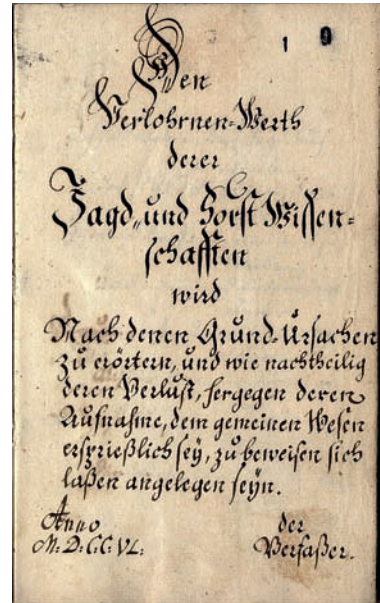 1 9
Den
Verlohrnen-Werth
derer
Jagd- und Forst Wissen-
schafften
wird
Nach denen Grund-Ursachen
zu erörtern, und wie nachtheilig
deren Verlust, hergegen deren
Aufnahme, dem gemeinen Wesen
ersprießlich sey, zu beweisen sich
laßen angelegen seyn.
Anno
M. D. C. C. VL.
der
Verfaßer.